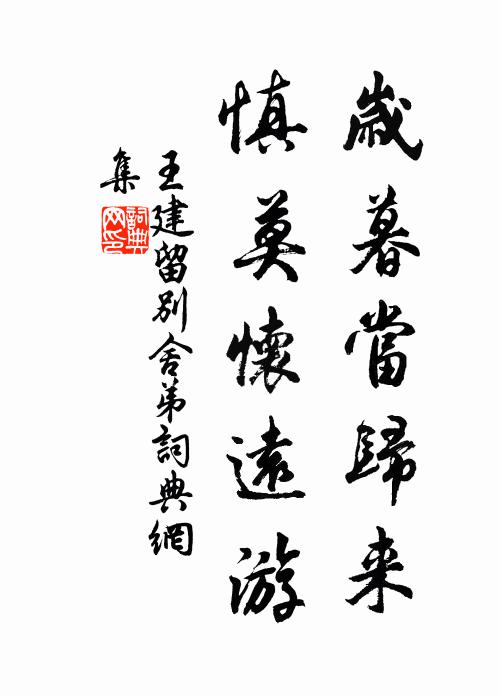 歲暮當歸来
慎莫懷遠游
王建留別舍弟詞典網
集
詞典
网印